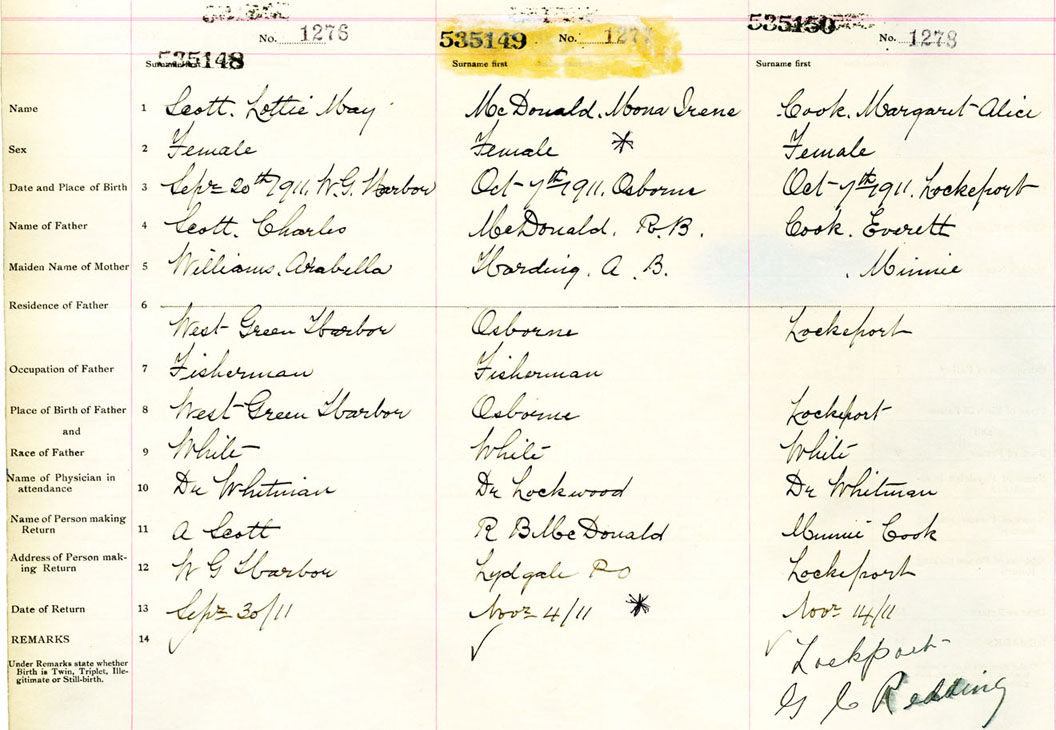 No. 1276 535149 No. 127 535150 No. 1278
535148
Surname first Surname first Surname first
Name 1 Scott. Lottie May McDonald. Mona Irene Cook. Margaret Alice
Sex 2 Female Female * Female
Date and Place of Birth 3 Sept 20th 1911. W. G. Harbor Oct 7th 1911. Osborne Oct 7th 1911. Lockeport
Name of Father 4 Scott. Charles McDonald. R. B. Cook. Everett
Maiden Name of Mother 5 Williams. Arabella Harding. A. B. . Minnie
Residence of Father 6
West Green Harbor Osborne Lockeport
Occupation of Father 7 Fisherman Fisherman
Place of Birth of Father 8 West Green Harbor Osborne Lockeport
and
Race of Father 9 White White White
Name of Physician in
attendance 10 Dr Whitman Dr Lockwood Dr Whitman
Name of Person making
Return 11 A Scott R B McDonald Minnie Cook
Address of Person mak-
ing Return 12 W G Harbor Lydgate PO Lockeport
Date of Return 13 Sept 30/11 Novr 4/11 * Novr 14/11
REMARKS 14 ✓ ✓
Under Remarks state whether
Birth is Twin, Triplet, Ille-
gitimate or Still-birth.
Lockport
G C Redding